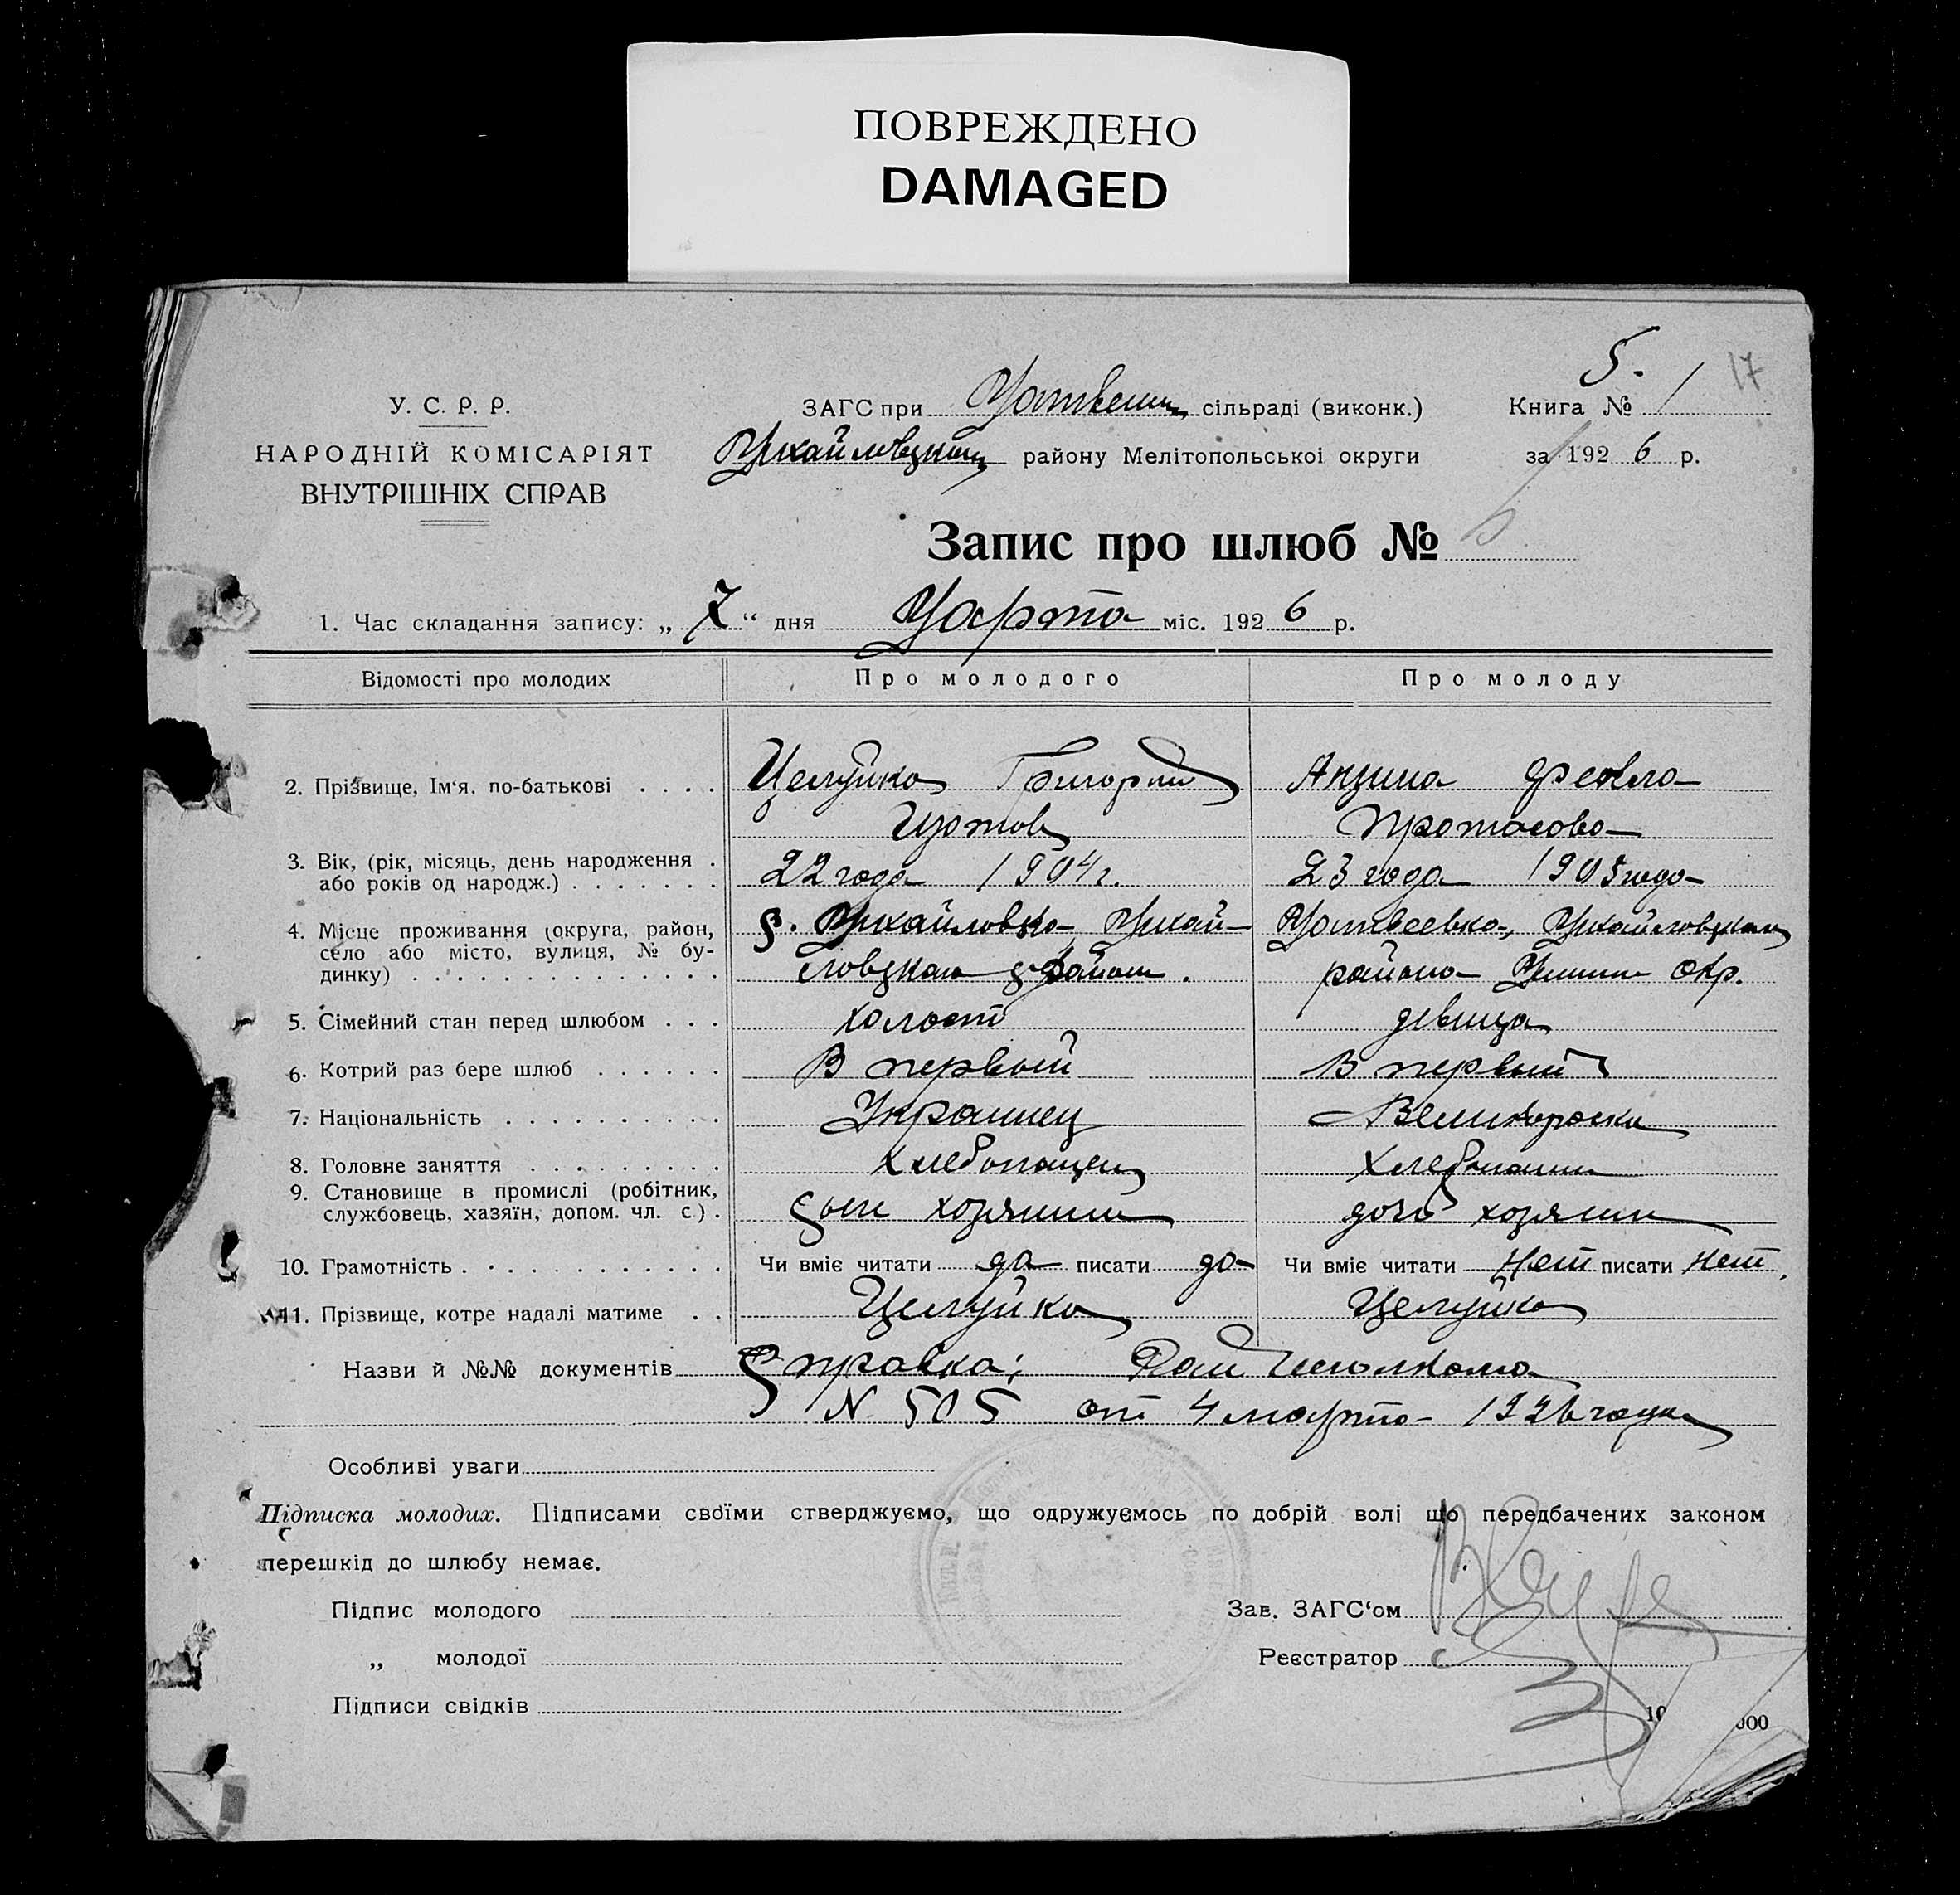 ПОВРЕЖДЕНО
DAMAGED
5.
17
У. С. Р. Р.
НАРОДНІЙ КОМІСАРІЯТ
ВНУТРІШНІХ СПРАВ
ЗАГС при сільраді (виконк.)
Книга № 1
району Мелітопольської округи
за 1926 р.
Запис про шлюб №
1. Час складання запису: „ 7 “ дня Марта міс. 1926 р.
Відомості про молодих
Про молодого
Про молоду
2. Прізвище, Ім'я, по-батькові . . . .
Целуйко Григорий
Анзина Феокла
Протасова
3. Вік, (рік, місяць, день народження .
або років од народж.) . . . . . . .
22 года 1904 г.
23 года 1903 года
4. Місце проживання (округа, район,
село або місто, вулиця, № бу-
динку) . . . . . . . . . . . . .
с. Михайловка Михай-
Матвеевка, Михайловский
района окр.
5. Сімейний стан перед шлюбом . . .
холост
девица
6. Котрий раз бере шлюб . . . . . .
В первый
В первый
7. Національність . . . . . . . . . .
Украинец
Великоросска
8. Головне заняття . . . . . . . . .
Хлебопашец
9. Становище в промислі (робітник,
службовець, хазяїн, допом. чл. с.) .
сын хозяина
дочь хозяина
10. Грамотність . . . . . . . . . . .
Чи вміє читати да писати да
Чи вміє читати Нет писати Нет,
11. Прізвище, котре надалі матиме . .
Целуйко
Целуйко
Назви й №№ документів Справка; Рай Исполкома
N 505 от 4 марта 1926 года
Особливі уваги
Підписка молодих. Підписами своїми стверджуємо, що одружуємось по добрій волі що передбачених законом
перешкід до шлюбу немає.
Підпис молодого
Зав. ЗАГС'ом
„ молодої
Реєстратор
Підписи свідків